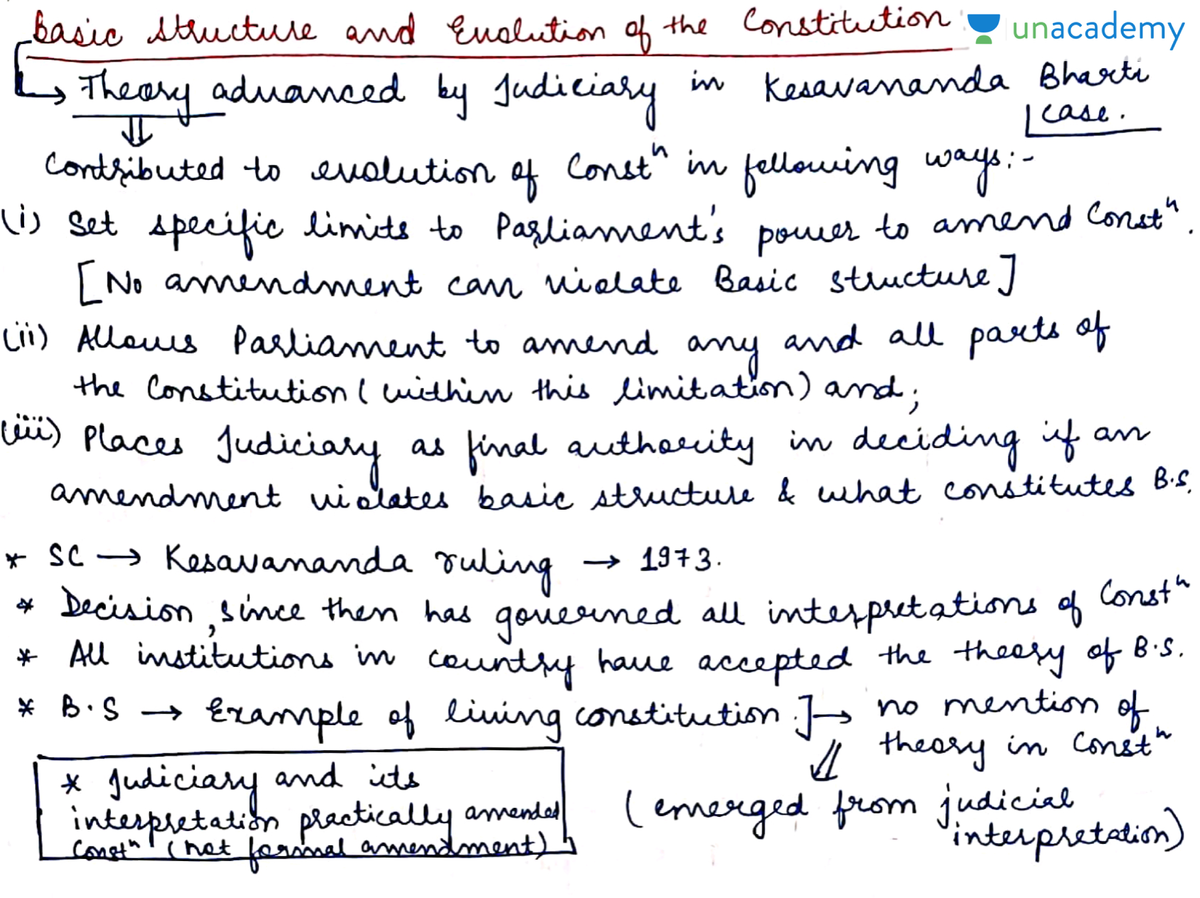 Basic Structure and Evolution of the Constitution
unacademy
Theory advanced by Judiciary in Kesavananda Bharti
case.
Contributed to evolution of Constⁿ in following ways:-
(i) Set specific limits to Parliament's power to amend Constⁿ.
[No amendment can violate Basic structure]
(ii) Allows Parliament to amend any and all parts of
the Constitution (within this limitation) and;
(iii) Places Judiciary as final authority in deciding if an
amendment violates basic structure & what constitutes B.S.
* SC → Kesavananda ruling → 1973.
* Decision, since then has governed all interpretations of Constⁿ
* All institutions in country have accepted the theory of B.S.
* B.S → Example of living constitution.] → no mention of
theory in Constⁿ
(emerged from judicial
interpretation)
* Judiciary and its
interpretation practically amended
Constⁿ (not formal amendment)